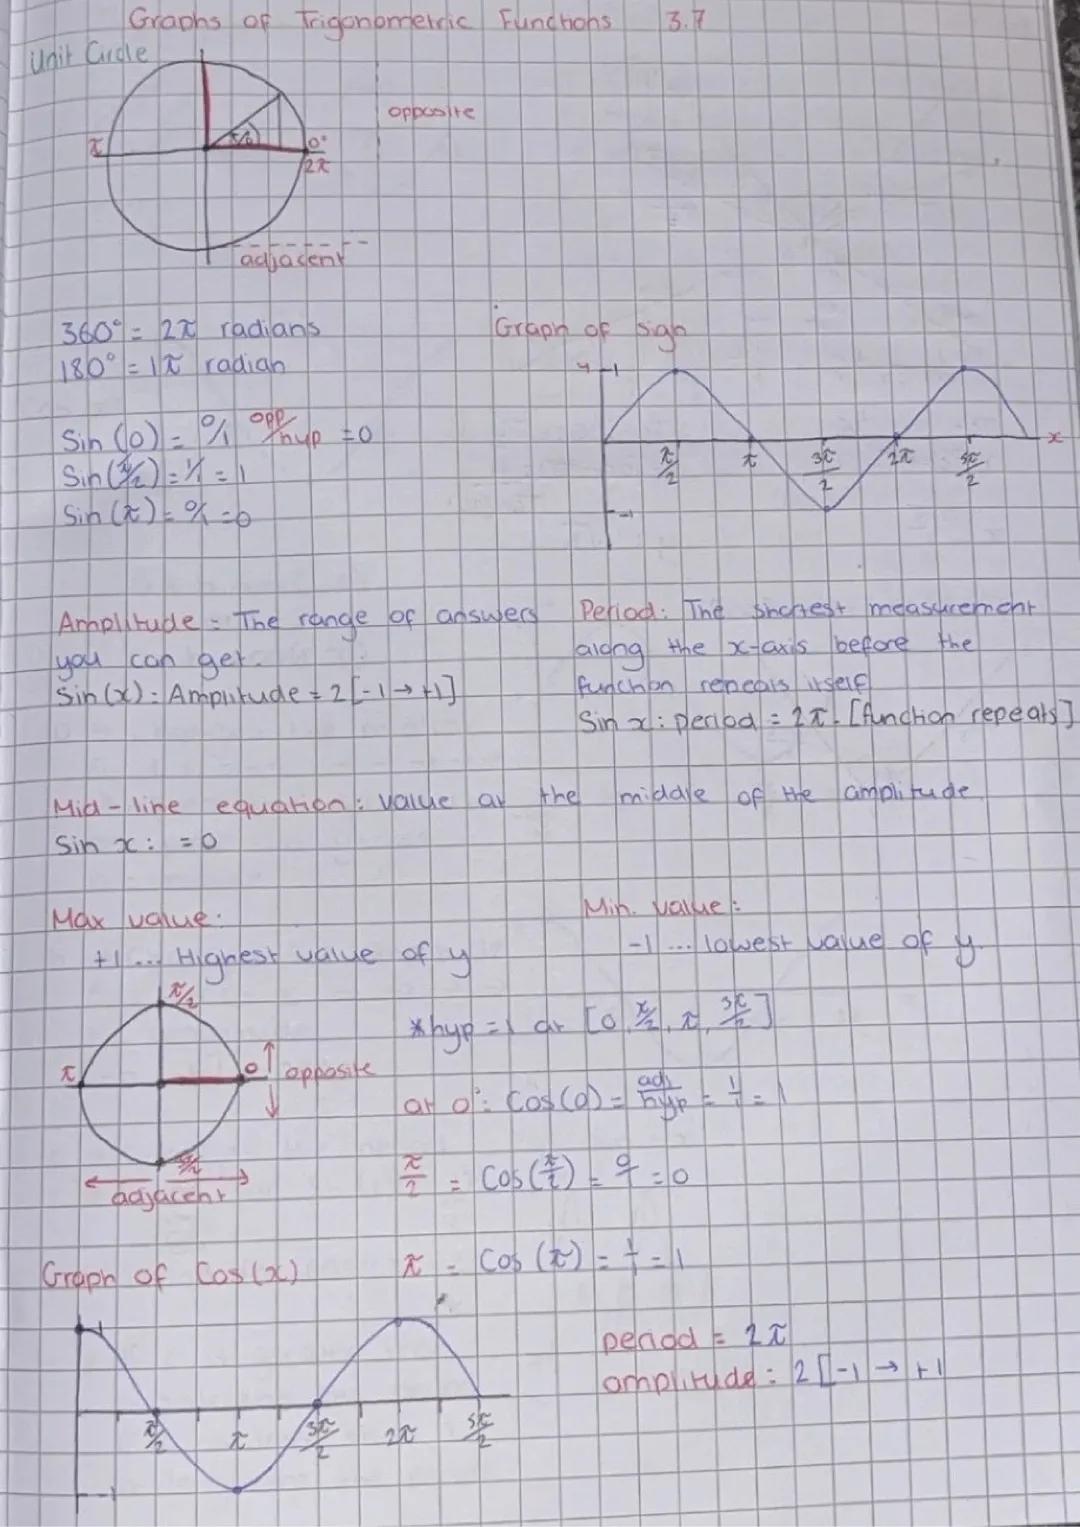 Graphs of Trigonometric Functions 3.7
Unit Circle
opposite
π
π/6
0°
2π
adjacent
360° = 2π radians
180° = 1π radian
Graph of sign
y
1
Sin (0) = 0/1 opp/hyp = 0
Sin (π/2) = 1/1 = 1
Sin (π) = 0/1 = 0
π/2 π 3π/2 2π 5π/2 x
-1
Amplitude = The range of answers
you can get.
Sin (x) : Amplitude = 2 [-1 → +1]
Period: The shortest measurement
along the x-axis before the
function repeats itself
Sin x : period = 2π. [function repeats]
Mid-line equation: value at the middle of the amplitude
Sin x : = 0
Max value:
+1 ... Highest value of y
Min. value:
-1 ... lowest value of y.
π/2
π
0
opposite
adjacent
*hyp = 1 at [0, π/2, π, 3π/2]
at 0°: Cos (0) = adj/hyp = 1/1 = 1
π/2 = Cos (π/2) = 0/1 = 0
π = Cos (π) = 1/1 = 1
Graph of Cos (x)
1
π/2 π 3π/2 2π 5π/2
-1
period = 2π
amplitude: 2 [-1 → +1